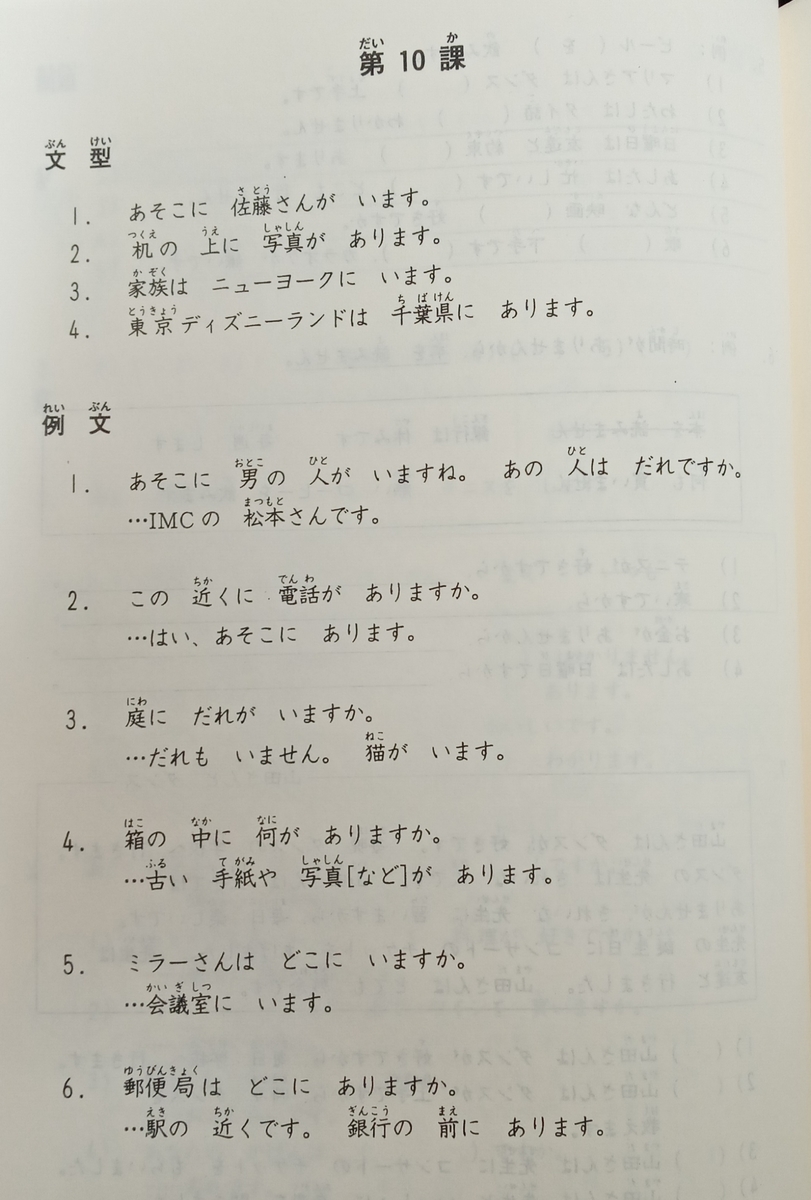 第10課
文型
1. あそこに 佐藤さんが います。
2. 机の 上に 写真が あります。
3. 家族は ニューヨークに います。
4. 東京ディズニーランドは 千葉県に あります。
例文
1. あそこに 男の 人が いますね。 あの 人は だれですか。
…IMCの 松本さんです。
2. この 近くに 電話が ありますか。
…はい、あそこに あります。
3. 庭に だれが いますか。
…だれも いません。 猫が います。
4. 箱の 中に 何が ありますか。
…古い 手紙や 写真[など]が あります。
5. ミラーさんは どこに いますか。
…会議室に います。
6. 郵便局は どこに ありますか。
…駅の 近くです。 銀行の 前に あります。